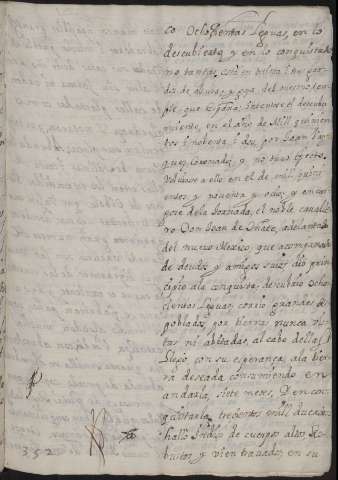 co ochosientas leguas, en lo
descubierto, y en lo conquistado
no tantas,
de altura, y goza del mesmo tem-
ple, que España; intentose el descubri-
miento, en el año de Mill quinien-
tos y nobenta, y dos, por Juan
quez Coronado, y no tuvo efecto,
volviose a ello en el de mil quini-
entos, y noventa y ocho, y encar-
gose de la Jornada, el noble cavalle-
ro Don Juan de Oñate, adelantado
del nuevo Mexico, que acompañado
de deudos, y amigos suios dio prin-
cipio a la conquista, descubrio ocho-
cientas leguas, corrio grandes des-
poblados, por tierras nunca vis-
tas ni abitadas, al cabo de ellas
llego, con su esperança, a la tier-
ra deseada consumiendo en
andarla, siete meses, y en con-
quistarla, trecientos mill ducados
hallo Indios de cuerpos altos, Ro-
bustos, y vien travados, en su
352